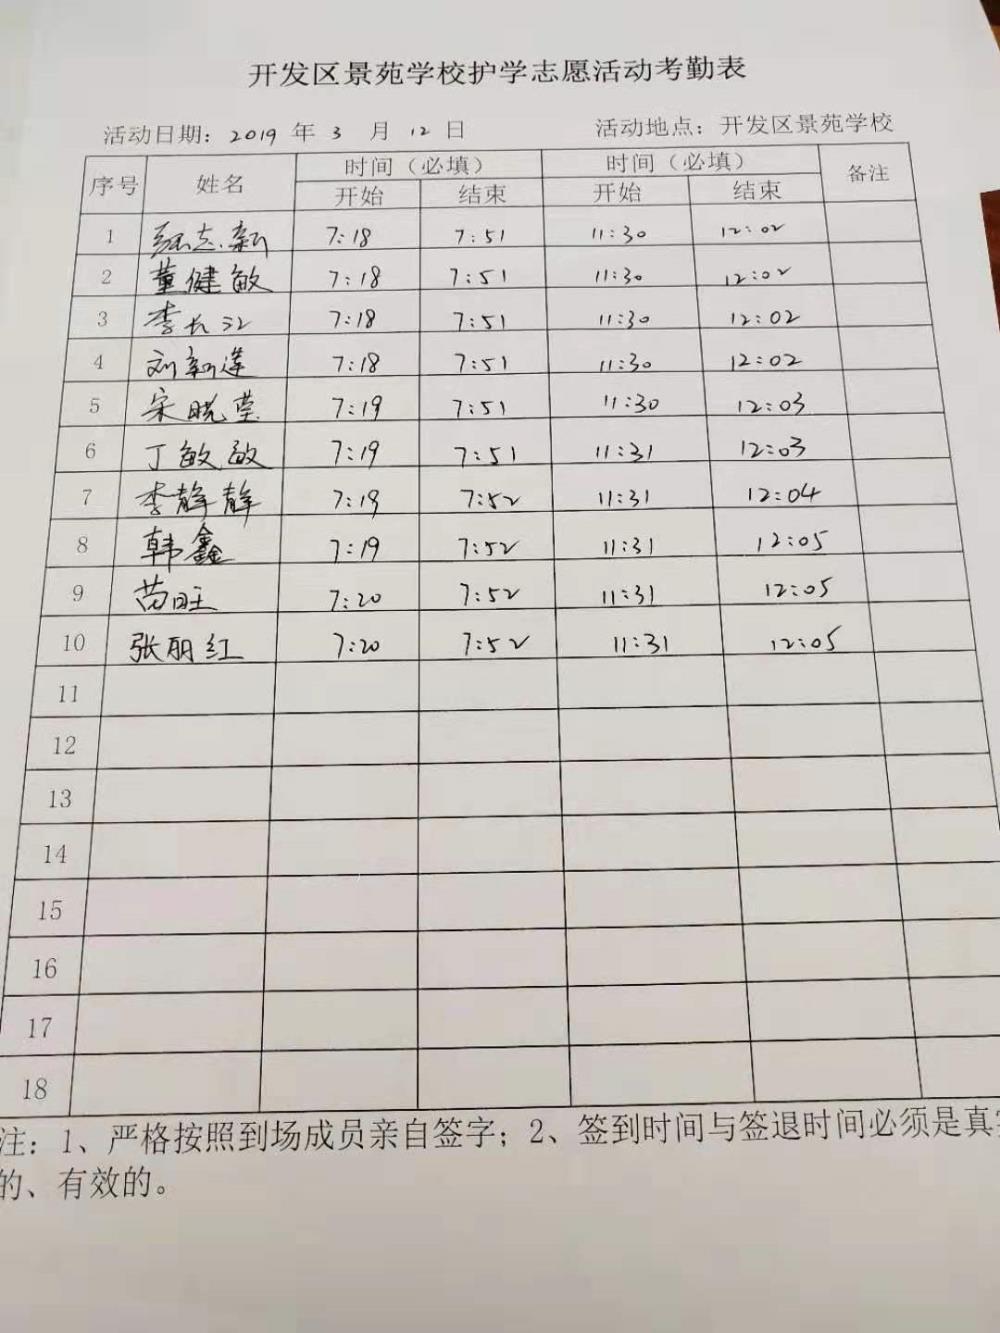 开发区景苑学校护学志愿活动考勤表
活动日期: 2019 年 3 月 12 日 活动地点: 开发区景苑学校
序号 姓名 时间（必填） 时间（必填） 备注
开始 结束 开始 结束
1 志新 7:18 7:51 11:30 12:02
2 董健敏 7:18 7:51 11:30 12:02
3 李长江 7:18 7:51 11:30 12:02
4 刘新莲 7:18 7:51 11:30 12:02
5 宋晓莹 7:19 7:51 11:30 12:03
6 丁敏敏 7:19 7:51 11:31 12:03
7 李静静 7:19 7:52 11:31 12:04
8 韩鑫 7:19 7:52 11:31 12:05
9 苗旺 7:20 7:52 11:31 12:05
10 张丽红 7:20 7:52 11:31 12:05
11
12
13
14
15
16
17
18
注: 1、严格按照到场成员亲自签字; 2、签到时间与签退时间必须是真
的、有效的。